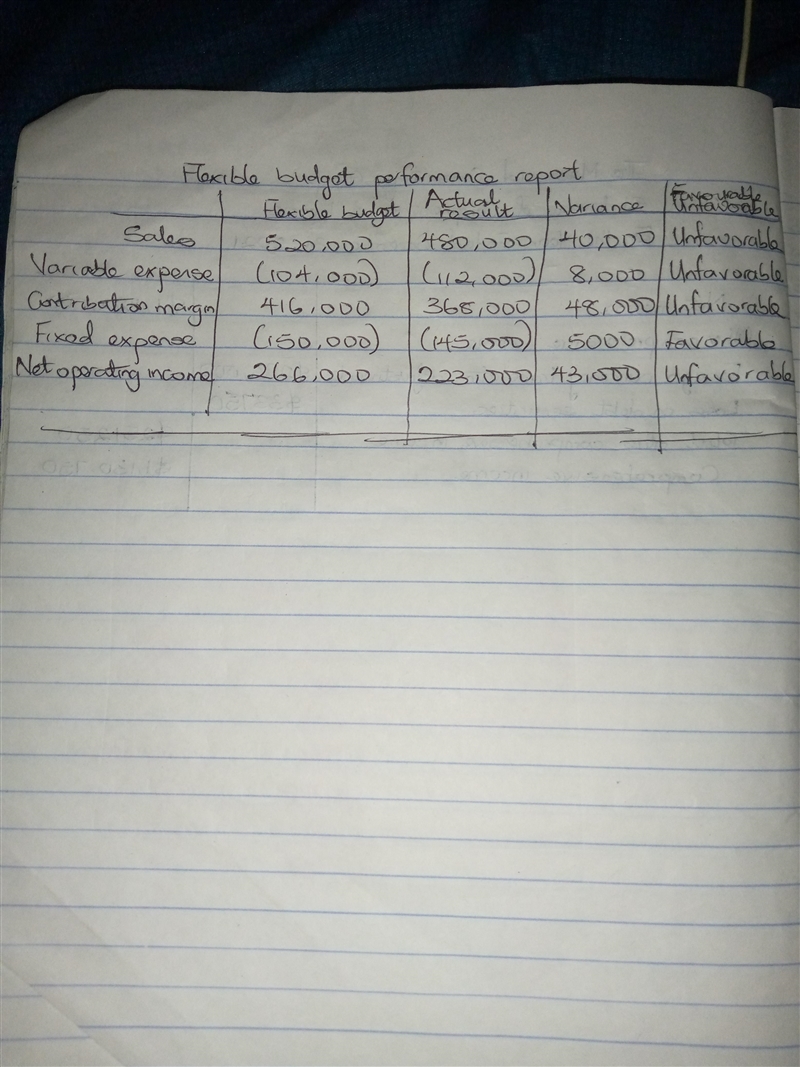 Flexible budget performance report
Flexible budget Actual result Variance Favourable Unfavorable
Sales 520,000 480,000 40,000 Unfavorable
Variable expense (104,000) (112,000) 8,000 Unfavorable
Contribution margin 416,000 368,000 48,000 Unfavorable
Fixed expense (150,000) (145,000) 5000 Favorable
Net operating income 266,000 223,000 43,000 Unfavorable